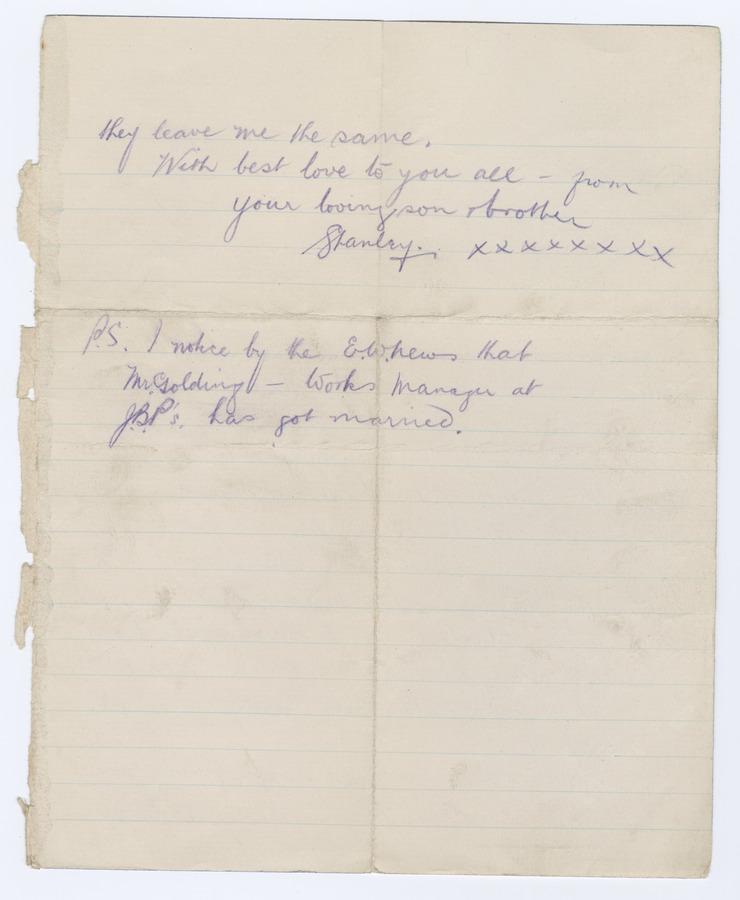 they leave me the same.
With best love to you all - from
your loving son & brother
Stanley. x x x x x x x x
P.S. I notice by the E.W. news that
Mr. Golding - Works Manager at
J.B.P's. has got married.